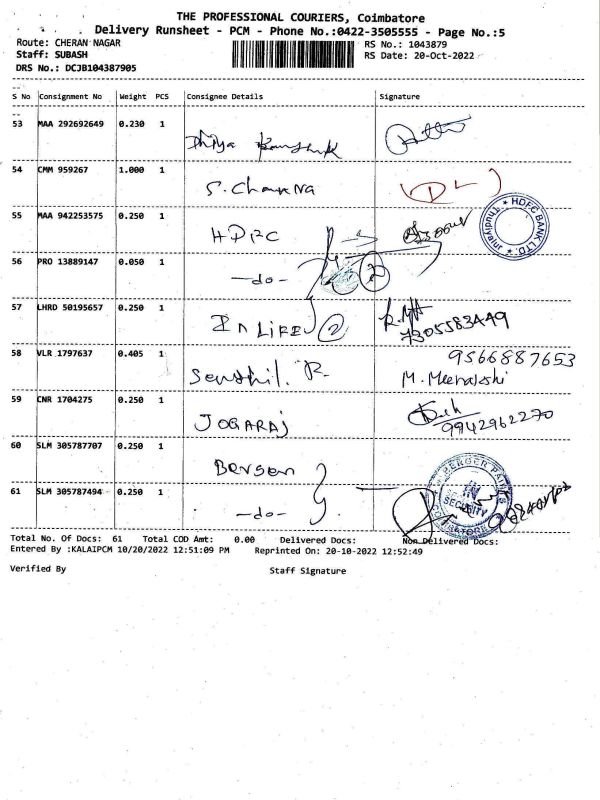 THE PROFESSIONAL COURIERS, Coimbatore
Delivery Runsheet - PCM - Phone No.:0422-3505555 - Page No.:5
Route: CHERAN NAGAR RS No.: 1043879
Staff: SUBASH RS Date: 20-Oct-2022
DRS No.: DCJB104387905
S No Consignment No Weight PCS Consignee Details Signature
53 MAA 292692649 0.230 1
Dhiya
54 CMM 959267 1.000 1
S.
55 MAA 942253575 0.250 1
HDFC
HDFC BANK LTD.
56 PRO 13889147 0.050 1
-do- 2
57 LHRD 50195657 0.250 1
INLIFE 2
7305583449
58 VLR 1797637 0.405 1 9566887653
Senthil. R. M. Meenakshi
59 CNR 1704275 0.250 1
JOGARAJ 9942962270
60 SLM 305787707 0.250 1
Berger
BERGER PAINTS
61 SLM 305787494 0.250 1 SECURITY
-do-
Total No. Of Docs: 61 Total COD Amt: 0.00 Delivered Docs: Non Delivered Docs:
Entered By :KALAIPCM 10/20/2022 12:51:09 PM Reprinted On: 20-10-2022 12:52:49
Verified By Staff Signature